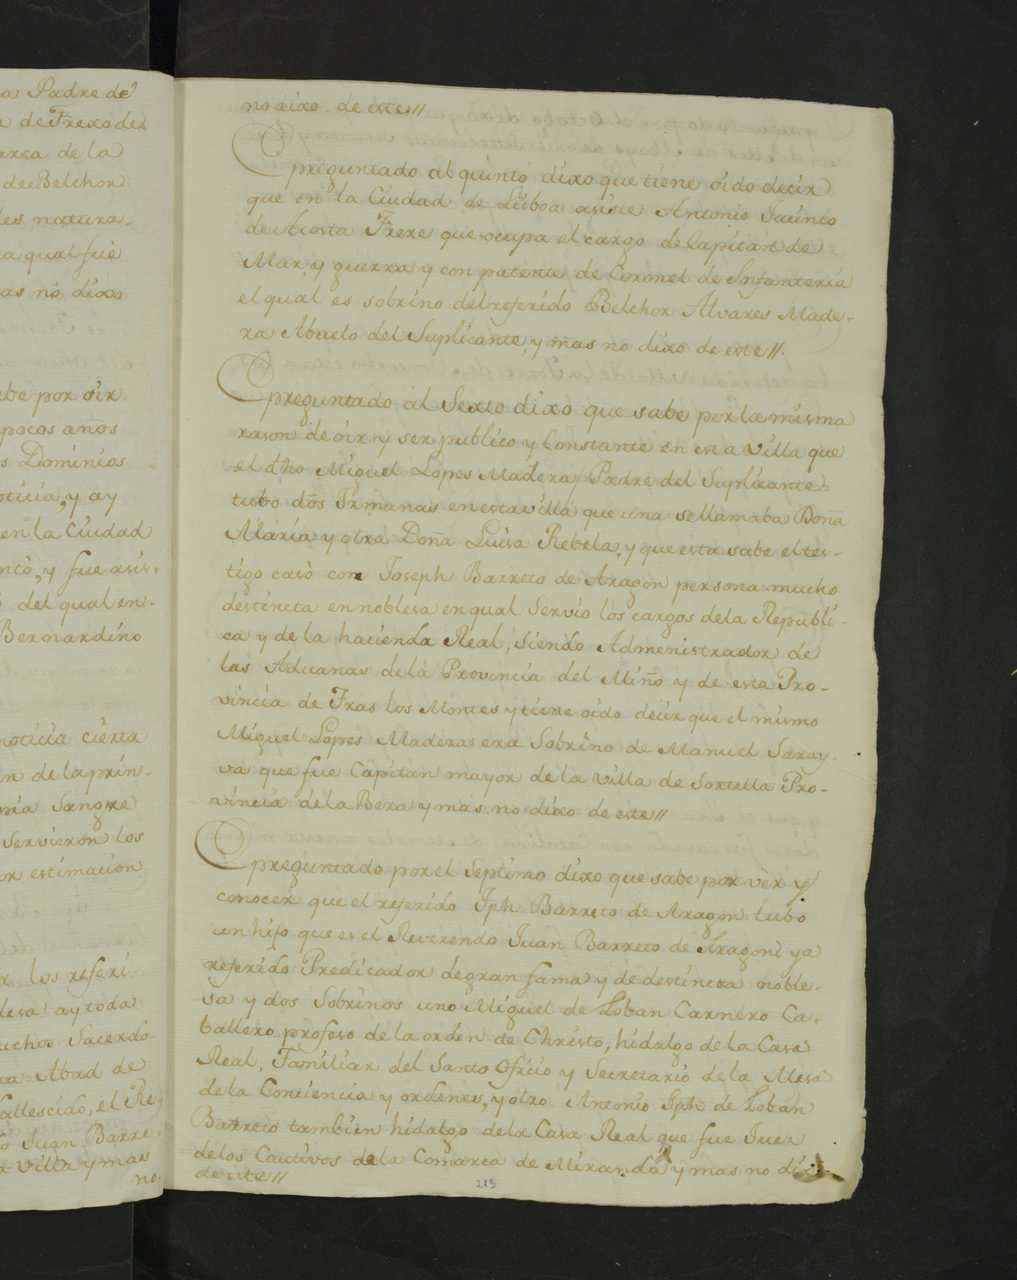 a Padre de
a de Frexo de
arca de la
de Belchor
les natura-
a qual fue
as no dixo
be por oir
pocos años
s Dominios
oticia, y ay
en la Ciudad
nto, y fue asis-
del qual en-
Bernardino
noticia cierta
n de la prin-
mia Sangre
Servieron los
or estimacion
los referi
ay toda
uchos Sacerdo-
Abad de
fallescido, el Re-
Juan Barre-
villa y mas
no.
no dixo de este//
preguntado al quinto dixo que tiene oido decir
que en la Ciudad de Lisboa asiste Antonio Jacinto
de Acosta Frere que ocupa el cargo de Capitan de
Mar, y guerra y con patente de Coronel de Infanteria
el qual es sobrino del referido Belchor Alvares Made-
ra Abuelo del Suplicante, y mas no dixo de este//.
preguntado al Sexto dixo que sabe por la misma
rason de oir y ser publico y Constante en esta Villa que
el dho Miguel Lopes Madera Padre del Suplicante
tubo dos Irmanas en esta villa que una se llamaba Doña
Maria y otra Doña Luisa Rebela, y que esta sabe el tes-
tigo casò con Joseph Barreto de Aragon persona mucho
destincta en noblesa en qual Servio los cargos de la Republi-
ca y de la hacienda Real, siendo Admenistrador de
las Aduanas de la Provincia del Miño y de esta Pro-
vincia de Tras los Montes y tiene oido decir que el mismo
Miguel Lopes Madera era Sobrino de Manuel Saray-
va que fue Capitan mayor de la villa de Sortella Pro-
vincia de la Bera y mas no dixo de este//
preguntado por el Septimo dixo que sabe por ver y
conocer que el referido Jph Barreto de Aragon tubo
un hijo que es el Reverendo Juan Barreto de Aragon ya
referido Predicador de gran fama y de destincta noble-
sa y dos Sobrinos uno Miguel de Loban Carnero Ca-
ballero profeso de la orden de Christo, hidalgo de la Casa
Real, Familiar del Santo Oficio y Secretario de la Mesa
de la Conciencia y ordenes, y otro Antonio Jph de Loban
Barreto tambien hidalgo de la Casa Real que fue Juez
de los Cautivos de la Comarca de Miranda y mas no dixo
de este//
213